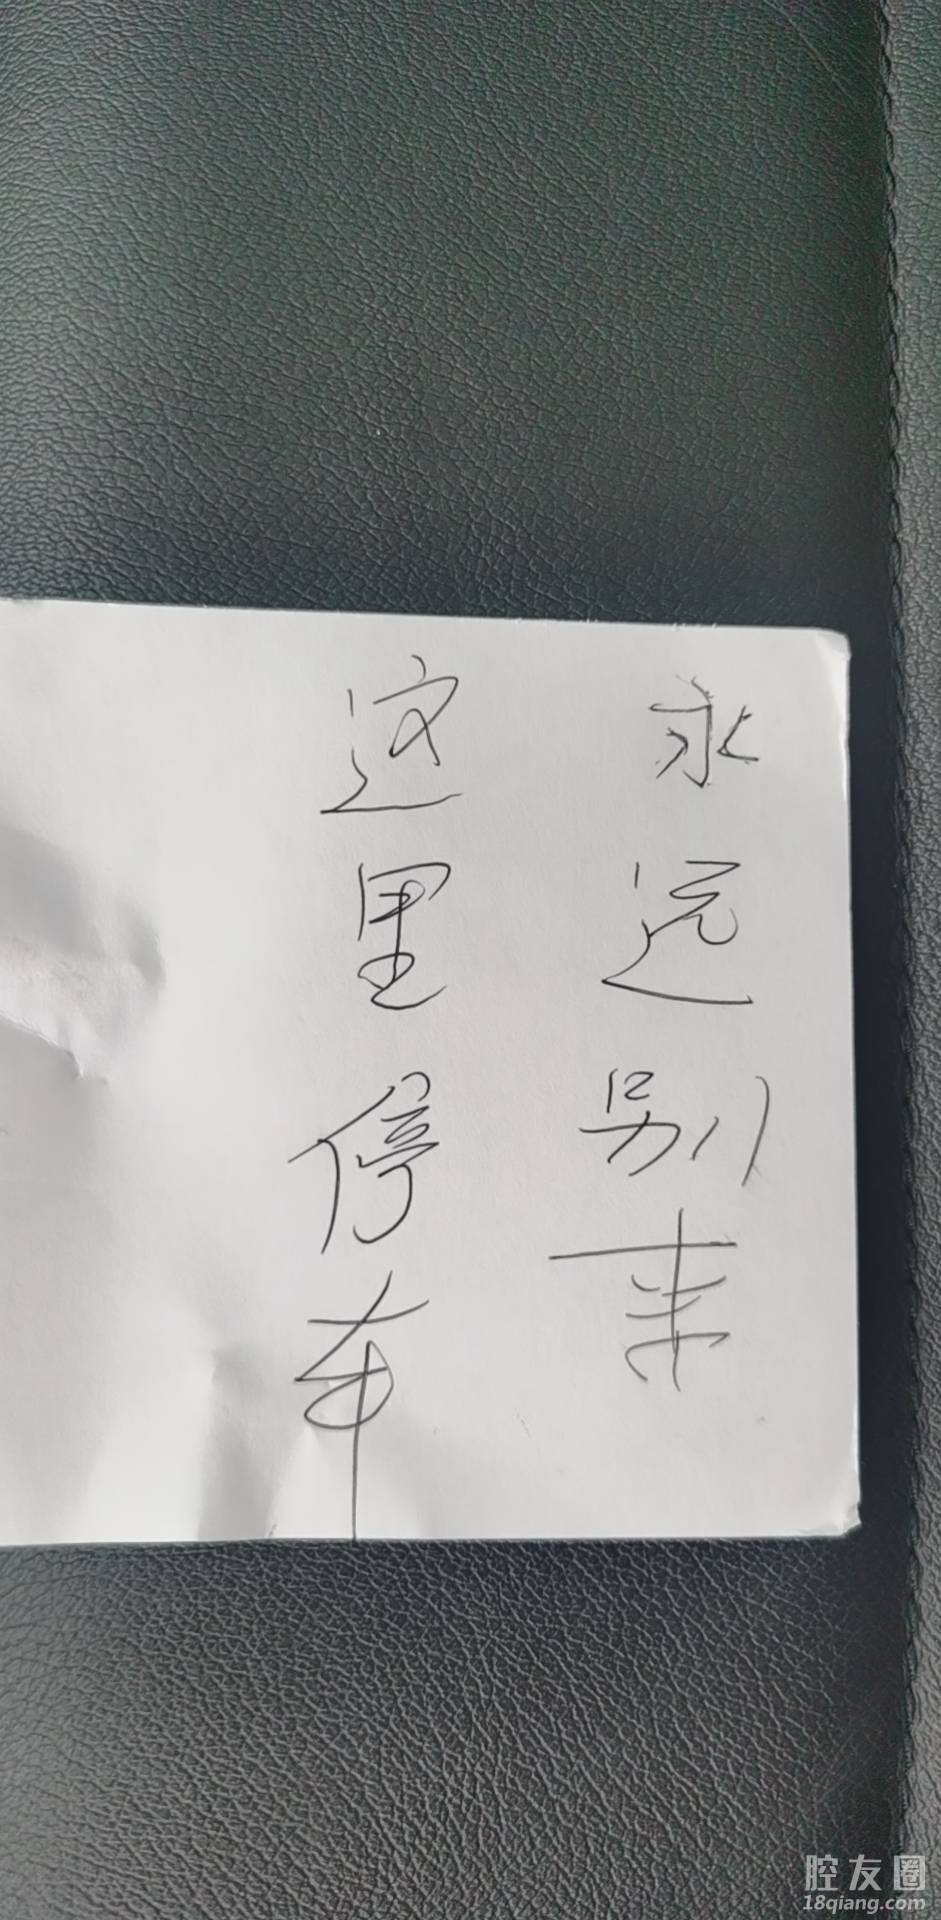 永远别来
这里停车
腔友圈
18qiang.com